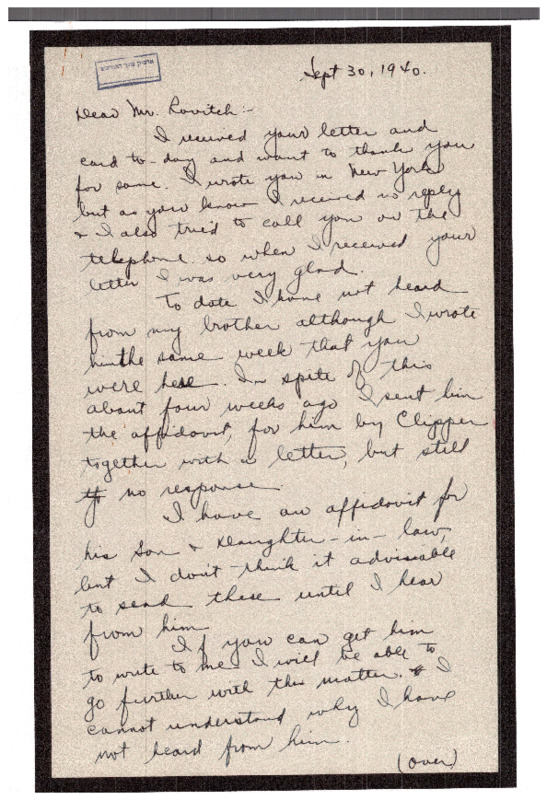 Sept 30, 1940.
Dear Mr. Rovitch:-
I received your letter and
card to-day and want to thank you
for same. I wrote you in New York
but as you know I received no reply
& I also tried to call you on the
telephone so when I received your
letter I was very glad.
To date I have not heard
from my brother although I wrote
him the same week that you
were here. In spite of this
about four weeks ago I sent him
the affidavit, for him by Clipper
together with a letter, but still
no response.
I have an affidavit for
his Son & Daughter-in-law,
but I don't think it adviseable
to send these until I hear
from him
If you can get him
to write to me I will be able to
go further with this matter. I
cannot understand why I have
not heard from him.
(over)